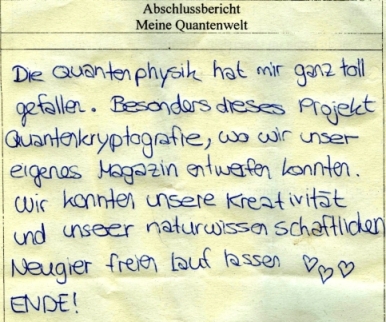 Abschlussbericht
Meine Quantenwelt
Die Quantenphysik hat mir ganz toll
gefallen. Besonders dieses Projekt
Quantenkryptografie, wo wir unser
eigenes Magazin entwerfen konnten.
Wir konnten unsere Kreativität
und unseer naturwissenschaftlichen
Neugier freien Lauf lassen ♡♡♡
ENDE!